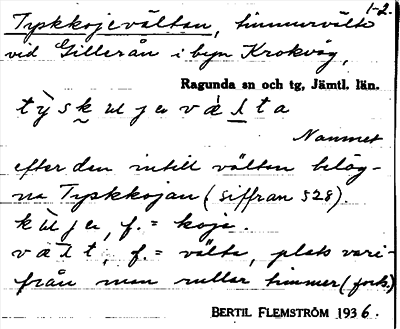 1-2.
Tyskkojevältan, timmervälte
vid Gillerån i byn Krokvåg,
Ragunda sn och tg, Jämtl. län.
Namnet
efter den intill vältan beläg-
na Tyskkojan (siffran 528).
f. = koja.
f. = välta, plats vari-
från man rullar timmer (forts.)
BERTIL FLEMSTRÖM 1936.